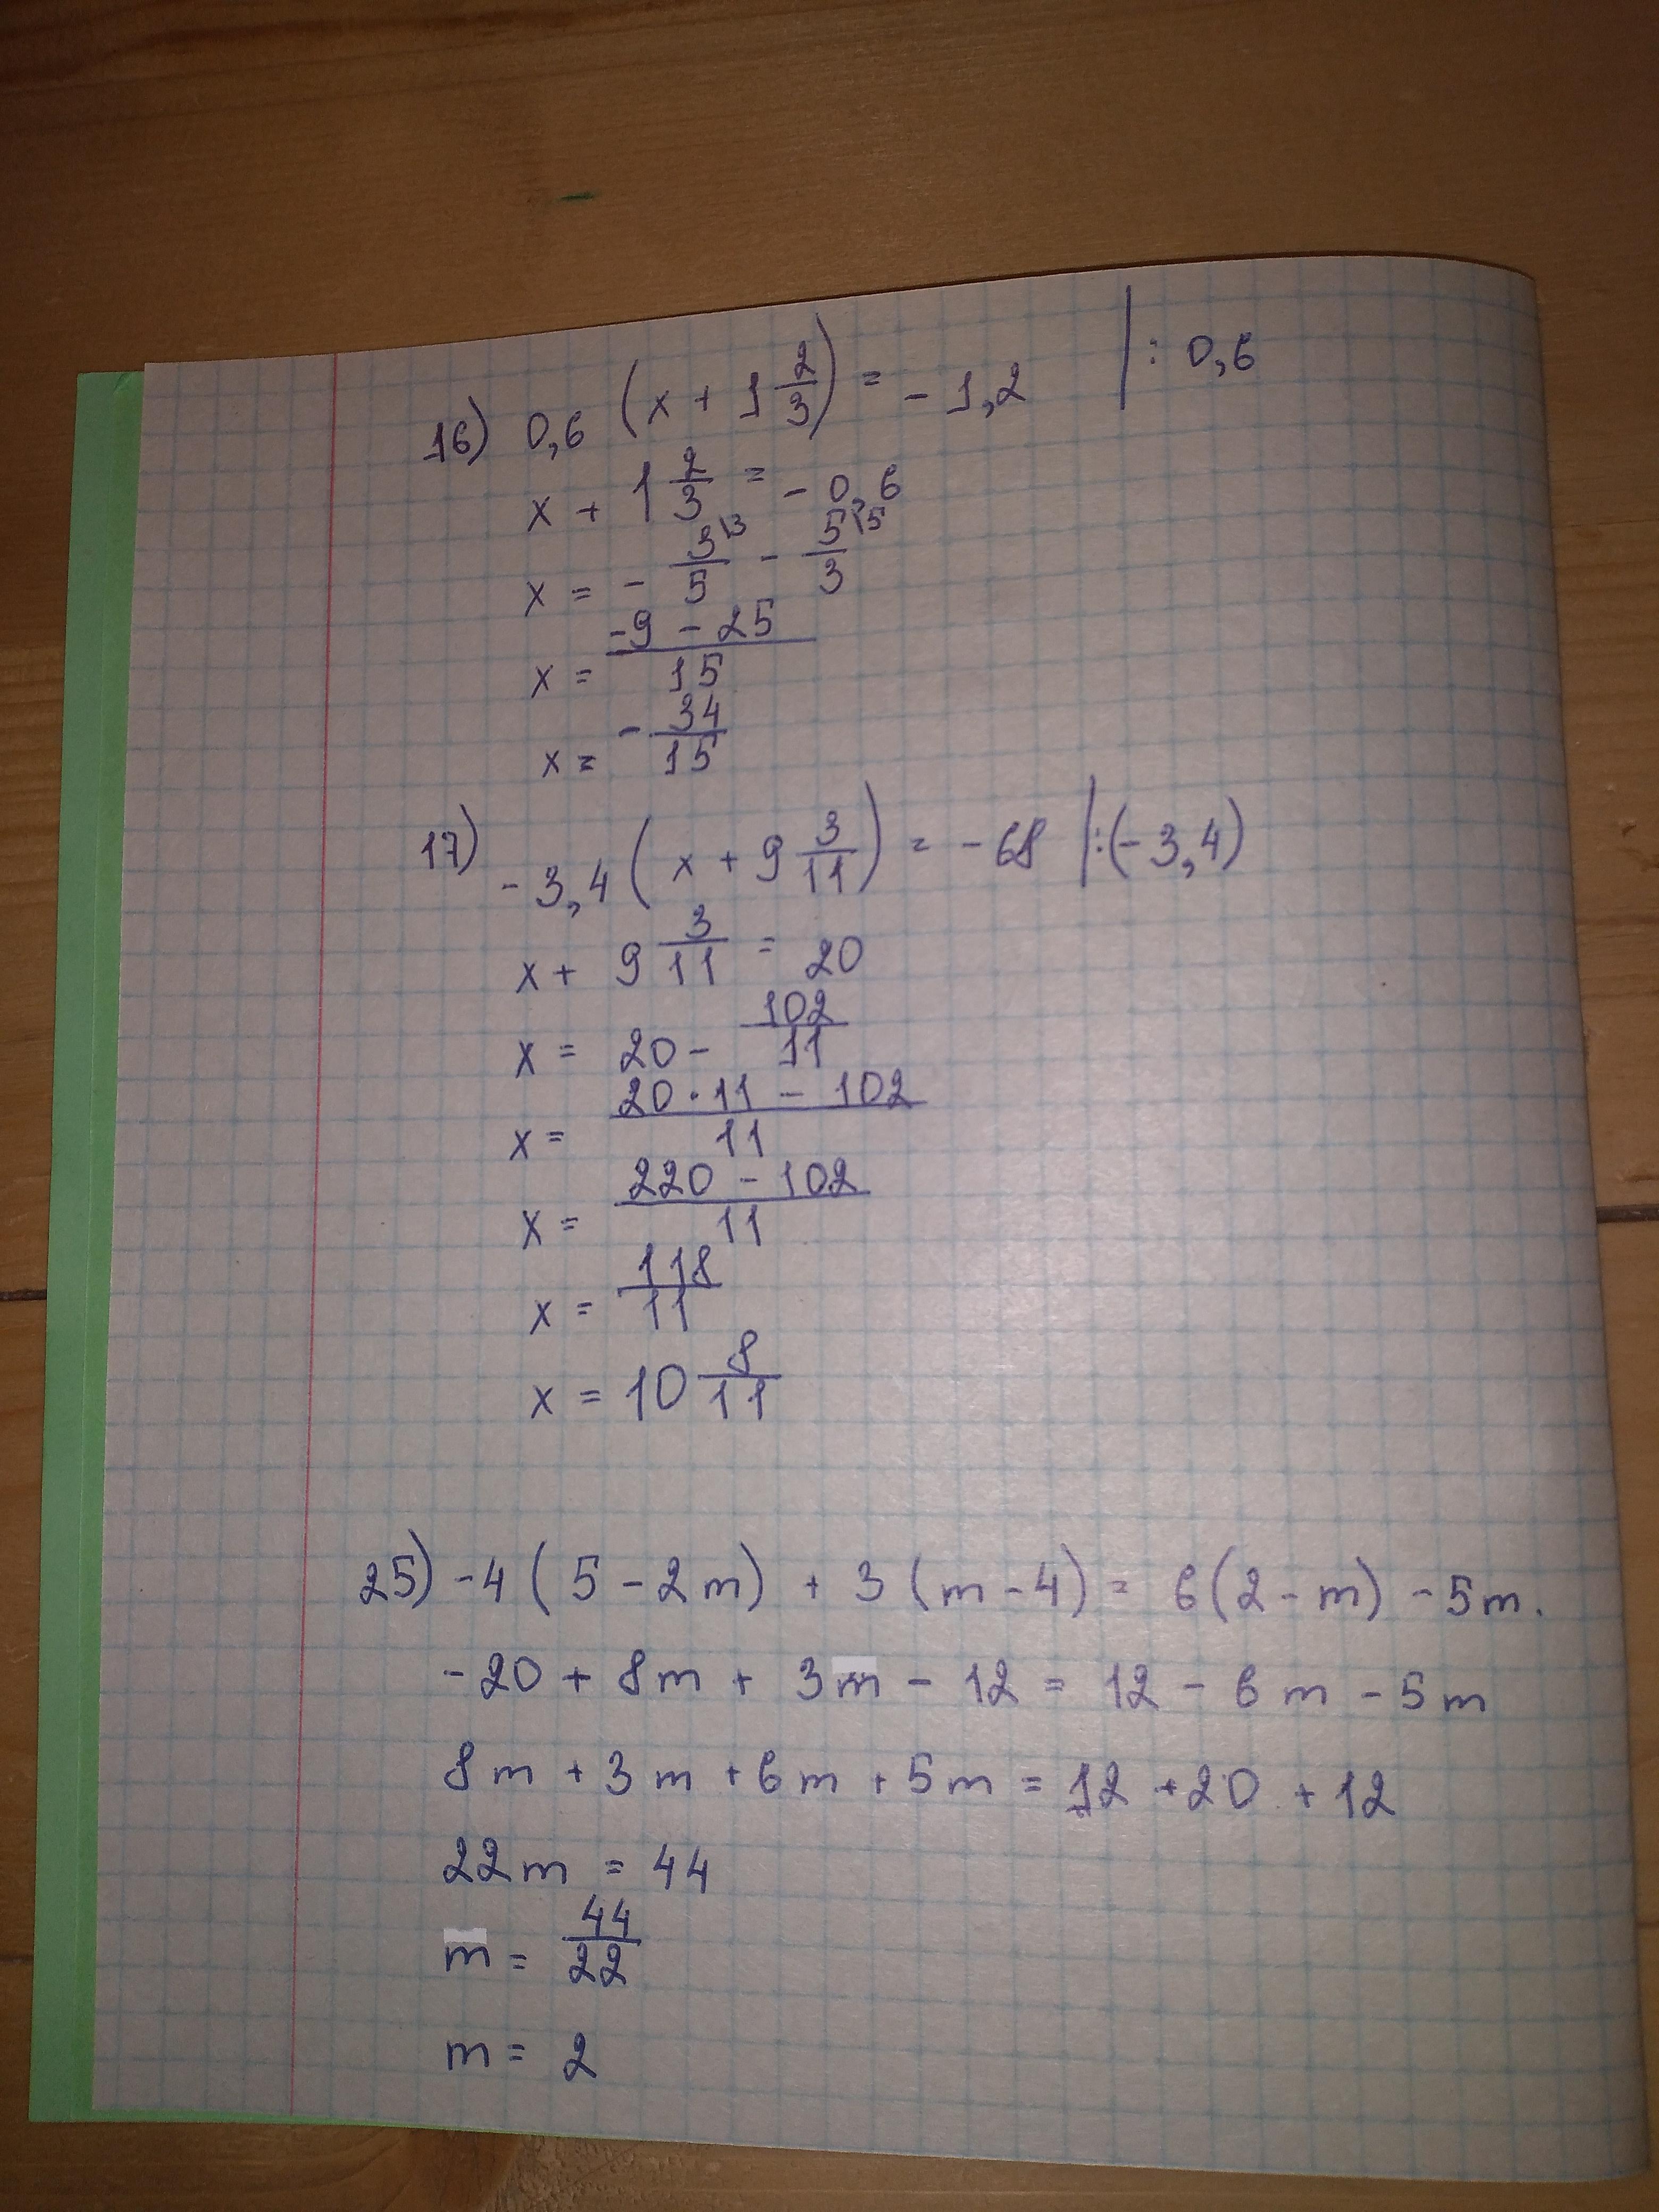 16) 0,6 (x + 1 2/3) = - 1,2 | : 0,6
x + 1 2/3 = - 0,6
x = - 3\3/5 - 5\5/3
x = -9 - 25/15
x = - 34/15
17) - 3,4 (x + 9 3/11) = - 68 | :(- 3,4)
x + 9 3/11 = 20
x = 20 - 102/11
x = 20 · 11 - 102/11
x = 220 - 102/11
x = 118/11
x = 10 8/11
25) -4 (5 - 2m) + 3 (m - 4) = 6 (2 - m) - 5m.
-20 + 8m + 3m - 12 = 12 - 6m - 5m
8m + 3m + 6m + 5m = 12 + 20 + 12
22m = 44
m = 44/22
m = 2